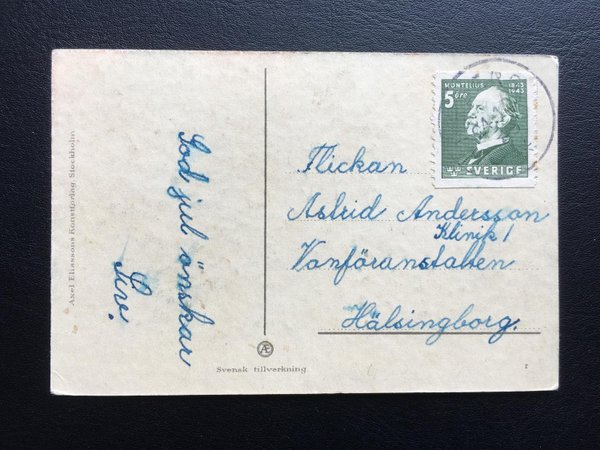 God jul önskar
Siv.
Axel Eliassons Konstförlag Stockholm
Svensk tillverkning
Æ
MONTELIUS 1843
1943
5 öre
SVERIGE
Flickan
Astrid Andersson
Klinik 1
Vanföranstalten
Hälsingborg.